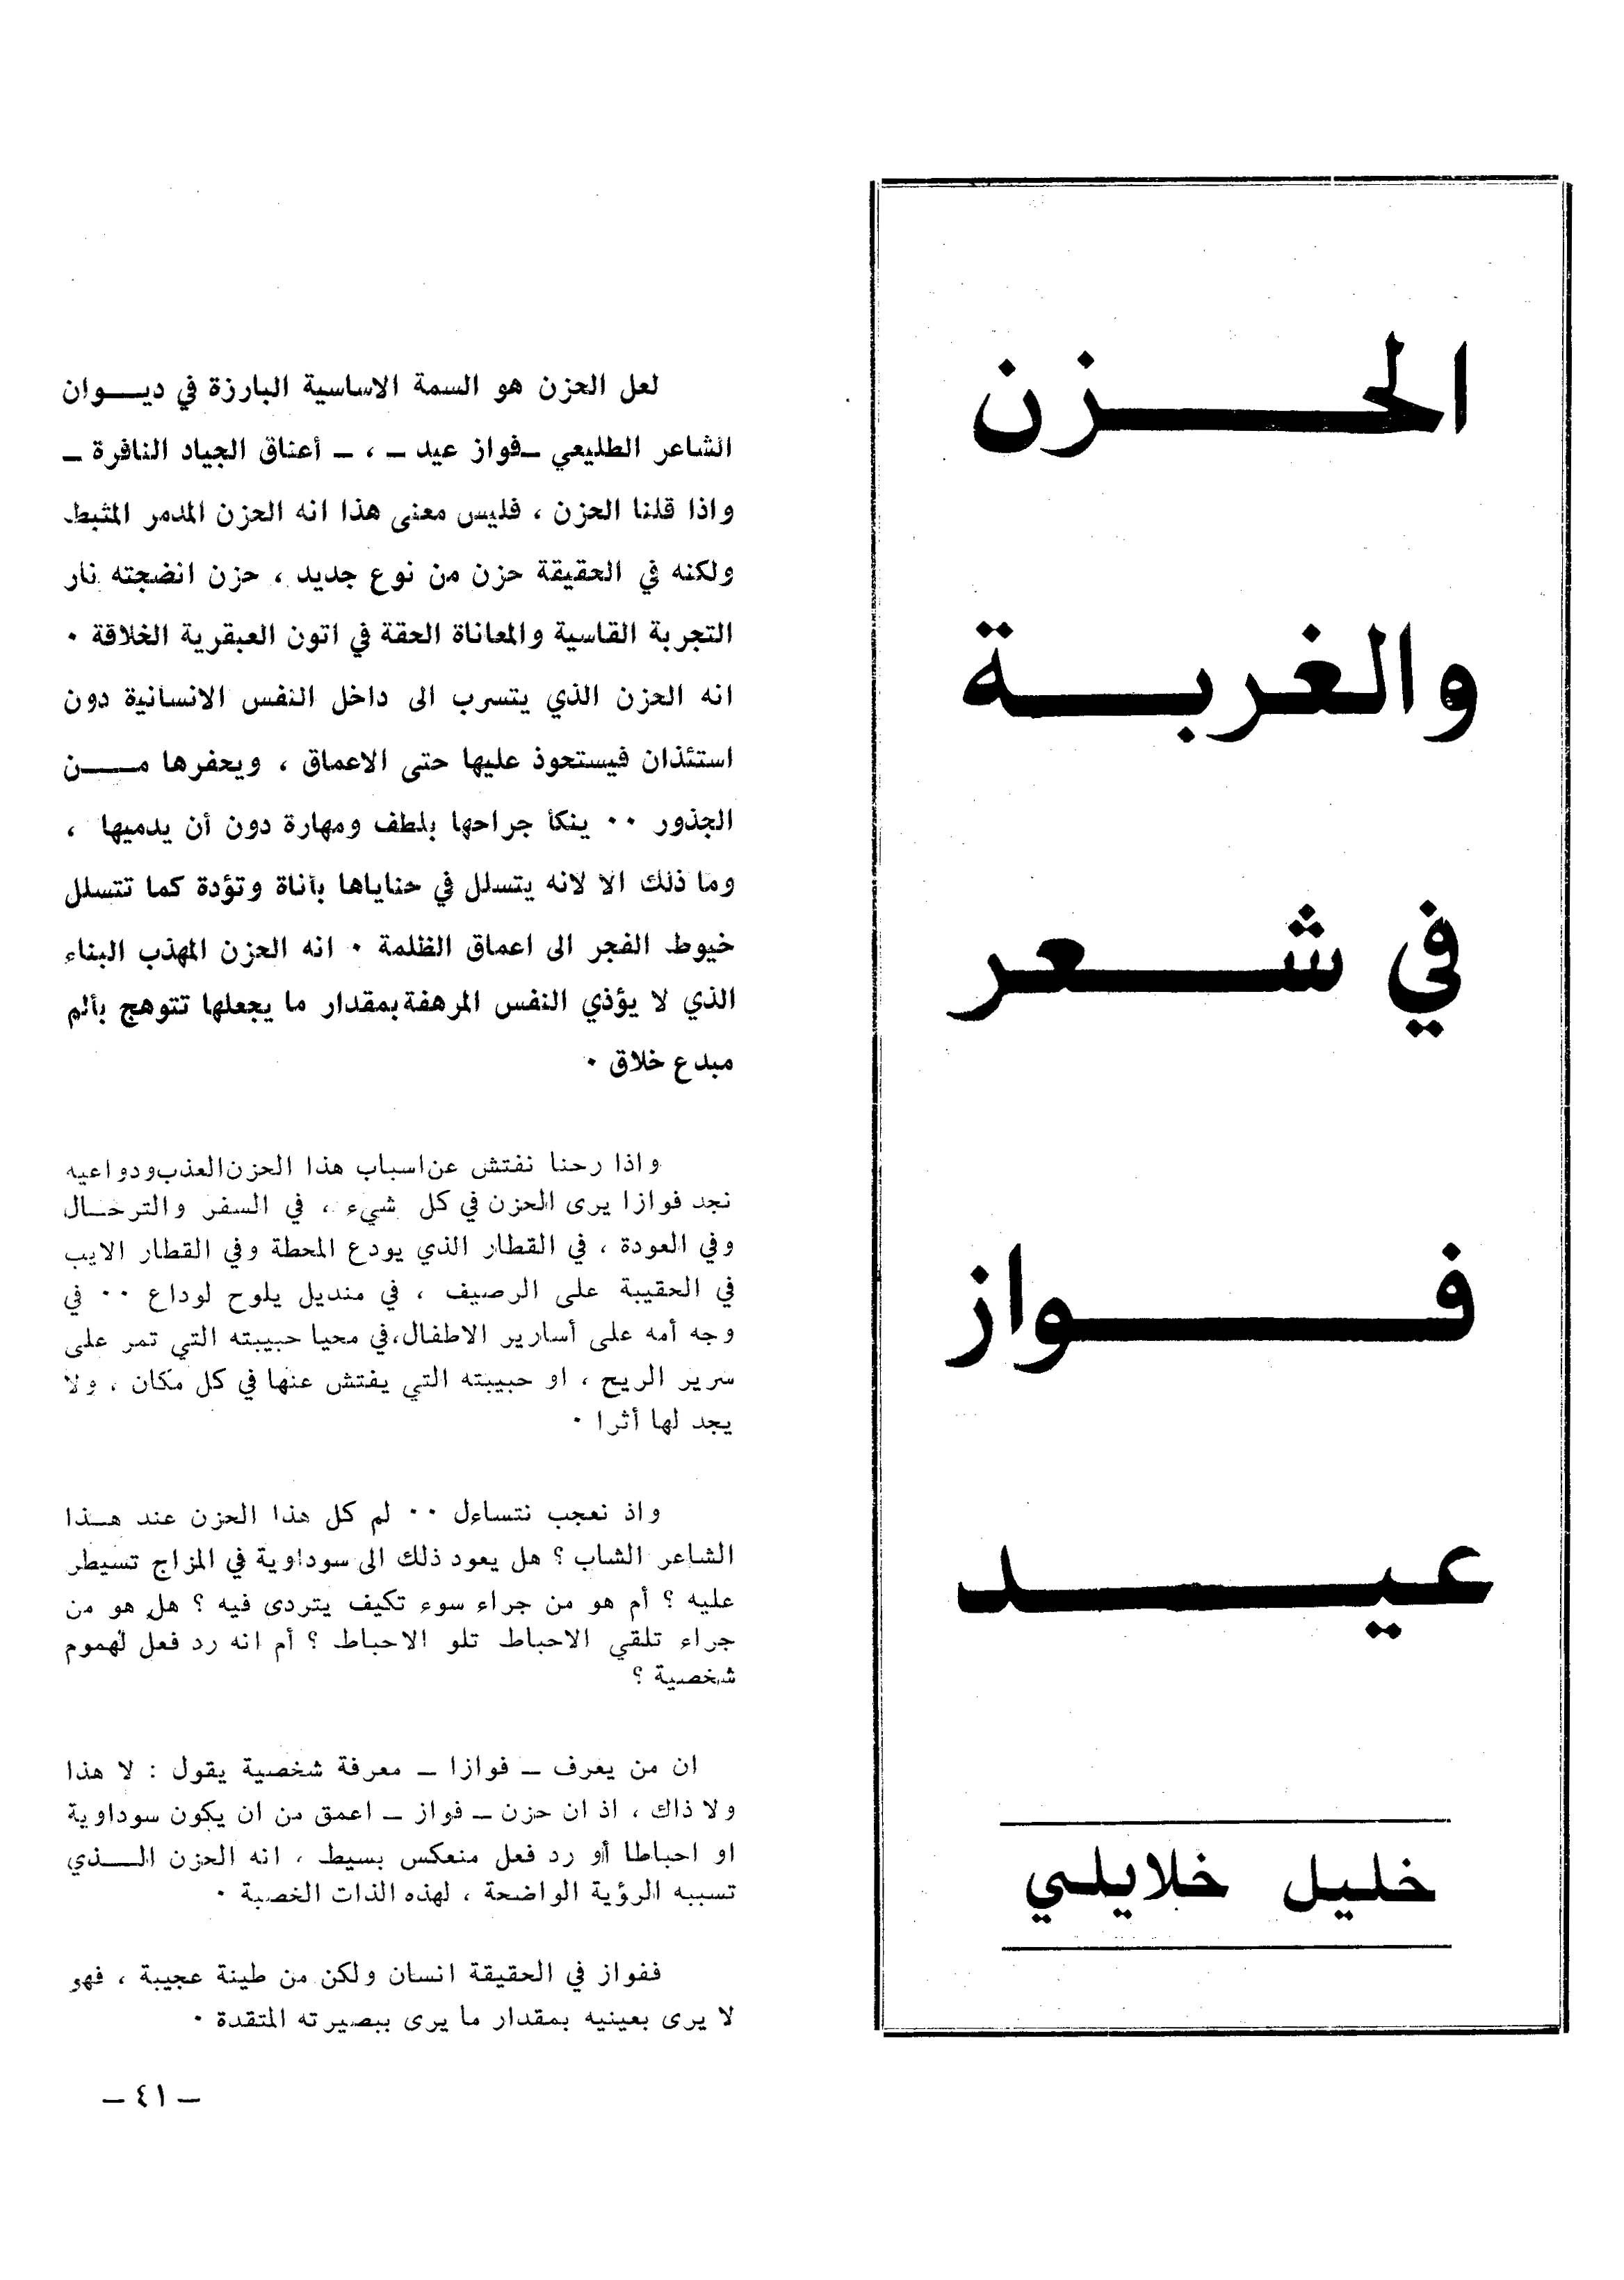 الحزن
والغربة
في شعر
فواز
عيد
خليل خلايلي
لعل الحزن هو السمة الاساسية البارزة في ديوان
الشاعر الطليعي ــفواز عيد ــ ، ــ أعناق الجياد النافرة ــ
واذا قلنا الحزن ، فليس معنى هذا انه الحزن المدمر المثبط
ولكنه في الحقيقة حزن من نوع جديد ، حزن انضجته نار
التجربة القاسية والمعاناة الحقة في اتون العبقرية الخلاقة ٠
انه الحزن الذي يتسرب الى داخل النفس الانسانية دون
استئذان فيستحوذ عليها حتى الاعماق ، ويحفرها من
الجذور ٠٠ ينكأ جراحها بلطف ومهارة دون أن يدميها ،
وما ذلك الا لانه يتسلل في حناياها بأناة وتؤدة كما تتسلل
خيوط الفجر الى اعماق الظلمة ٠ انه الحزن المهذب البناء
الذي لا يؤذي النفس المرهفة بمقدار ما يجعلها تتوهج بألم
مبدع خلاق ٠
واذا رحنا نفتش عن اسباب هذا الحزن العذب ودواعيه
نجد فوازا يرى الحزن في كل شيء ، في السفر والترحال
وفي العودة ، في القطار الذي يودع المحطة وفي القطار الايب
في الحقيبة على الرصيف ، في منديل يلوح لوداع ٠٠ في
وجه أمه على أسارير الاطفال،في محيا حبيبته التي تمر على
سرير الريح ، او حبيبته التي يفتش عنها في كل مكان ، ولا
يجد لها أثرا ٠
واذ نعجب نتساءل ٠٠ لم كل هذا الحزن عند هذا
الشاعر الشاب ؟ هل يعود ذلك الى سوداوية في المزاج تسيطر
عليه ؟ أم هو من جراء سوء تكيف يتردى فيه ؟ هل هو من
جراء تلقي الاحباط تلو الاحباط ؟ أم انه رد فعل لهموم
شخصية ؟
ان من يعرف ــ فوازا ــ معرفة شخصية يقول : لا هذا
ولا ذاك ، اذ ان حزن ــ فواز ــ اعمق من ان يكون سوداوية
او احباطا أو رد فعل منعكس بسيط ، انه الحزن الذي
تسببه الرؤية الواضحة ، لهذه الذات الخصبة ٠
ففواز في الحقيقة انسان ولكن من طينة عجيبة ، فهو
لا يرى بعينيه بمقدار ما يرى ببصيرته المتقدة ٠
ــ ٤١ ــ